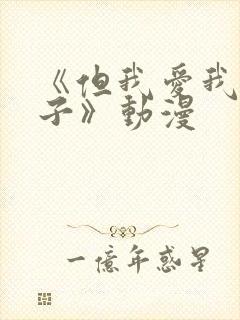 《但我愛我
子》動漫
一億年惑星